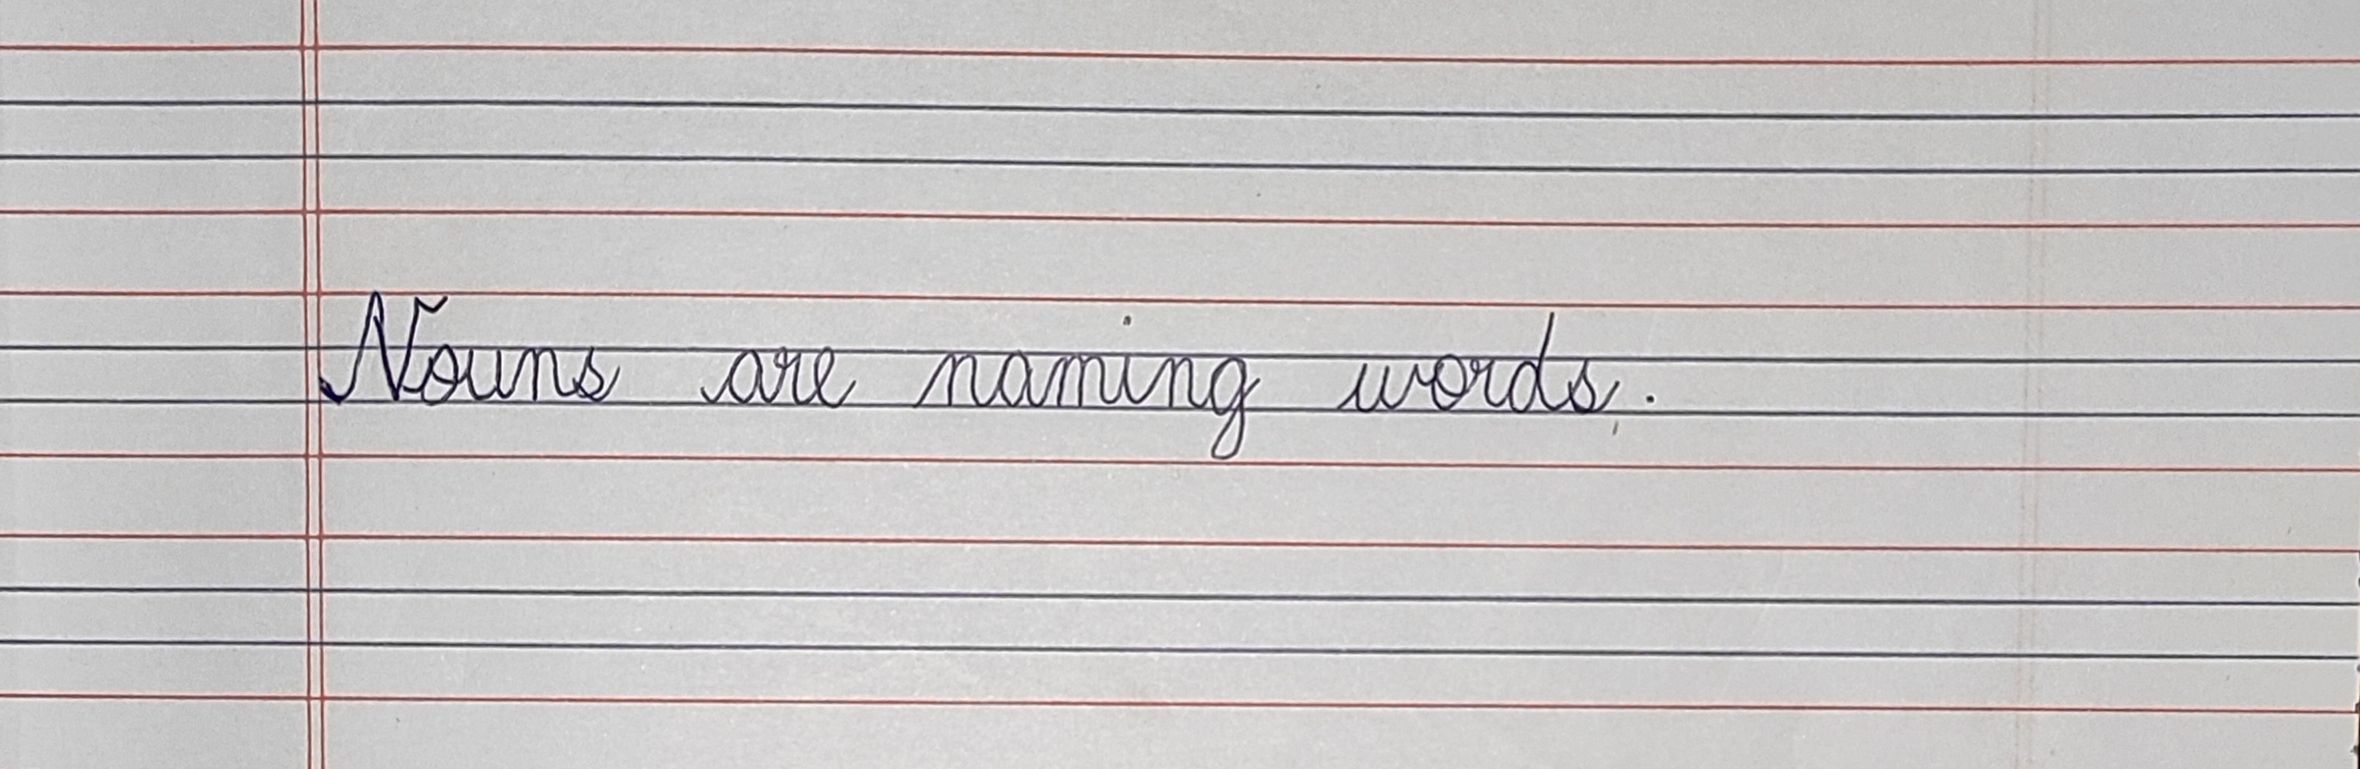 Nouns are naming words.